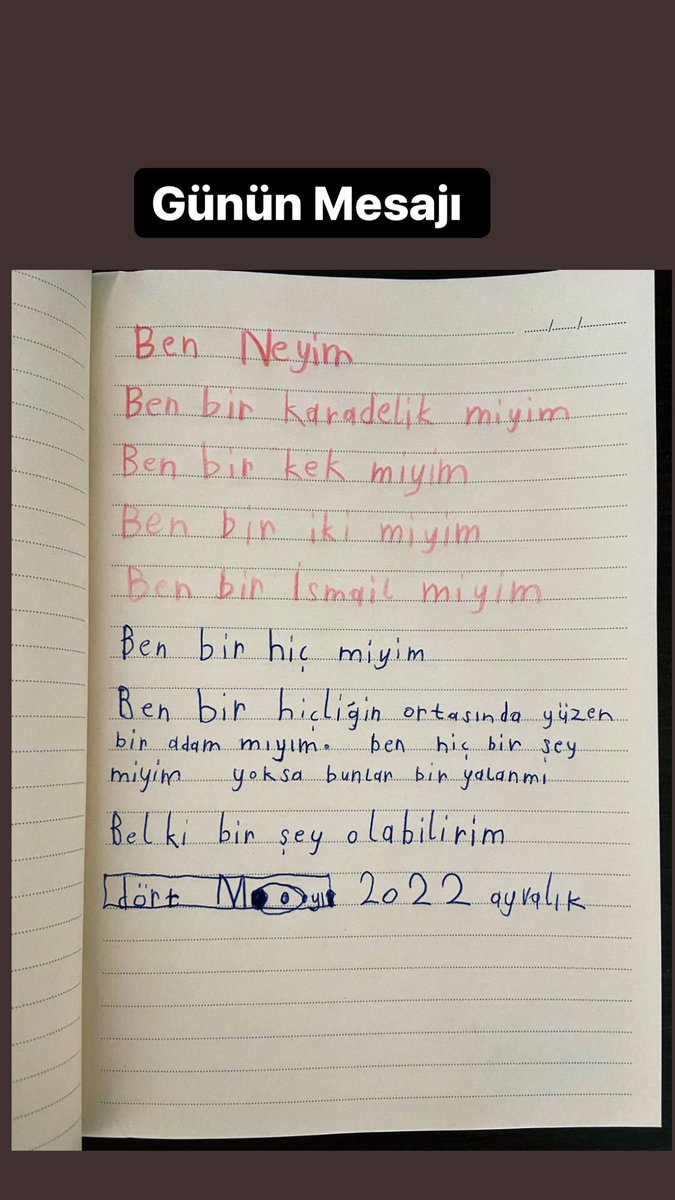 Günün Mesajı
....../....../............
Ben Neyim
Ben bir karadelik miyim
Ben bir kek miyim
Ben bir iki miyim
Ben bir İsmail miyim
Ben bir hiç miyim
Ben bir hiçliğin ortasında yüzen
bir adam mıyım. ben hiç bir şey
miyim yoksa bunlar bir yalanmı
Belki bir şey olabilirim
dört 2022 ayralık